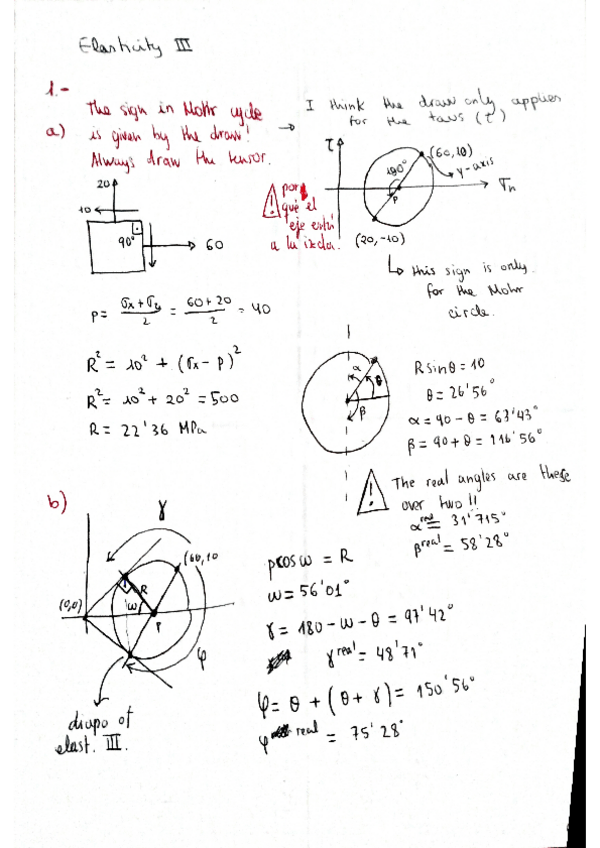 Elasticity III
1.-
a)
The sign in Mohr cycle
is given by the draw!
Always draw the tensor.
→ I think the draw only applies
for the taus (τ)
20
10
90°
60
! por
qué el
eje está
a la izda.
τ
(60,10)
y-axis
180°
P
σn
(20,-10)
↳ this sign is only
for the Mohr
circle.
P = (σx + σy)/2 = (60+20)/2 = 40
R² = 10² + (σx - P)²
R² = 10² + 20² = 500
R = 22'36 MPa
α
θ
β
R sin θ = 10
θ = 26'56°
α = 90 - θ = 63'43°
β = 90 + θ = 116'56°
! The real angles are these
over two !!
α real = 31'715°
β real = 58'28°
b)
γ
(60,10
(0,0)
R
ω
P
φ
of
elast. III.
p cos ω = R
ω = 56'01°
γ = 180 - ω - θ = 97'42°
γ real = 48'71°
φ = θ + (θ + γ) = 150'56°
φ real = 75'28°